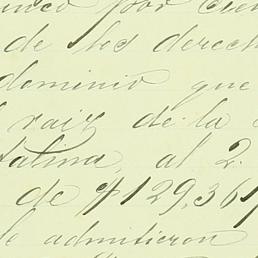 cinco por cien
de los derech
dominio que
raiz de la
talina, al 2.
de $129,361
le admitieron